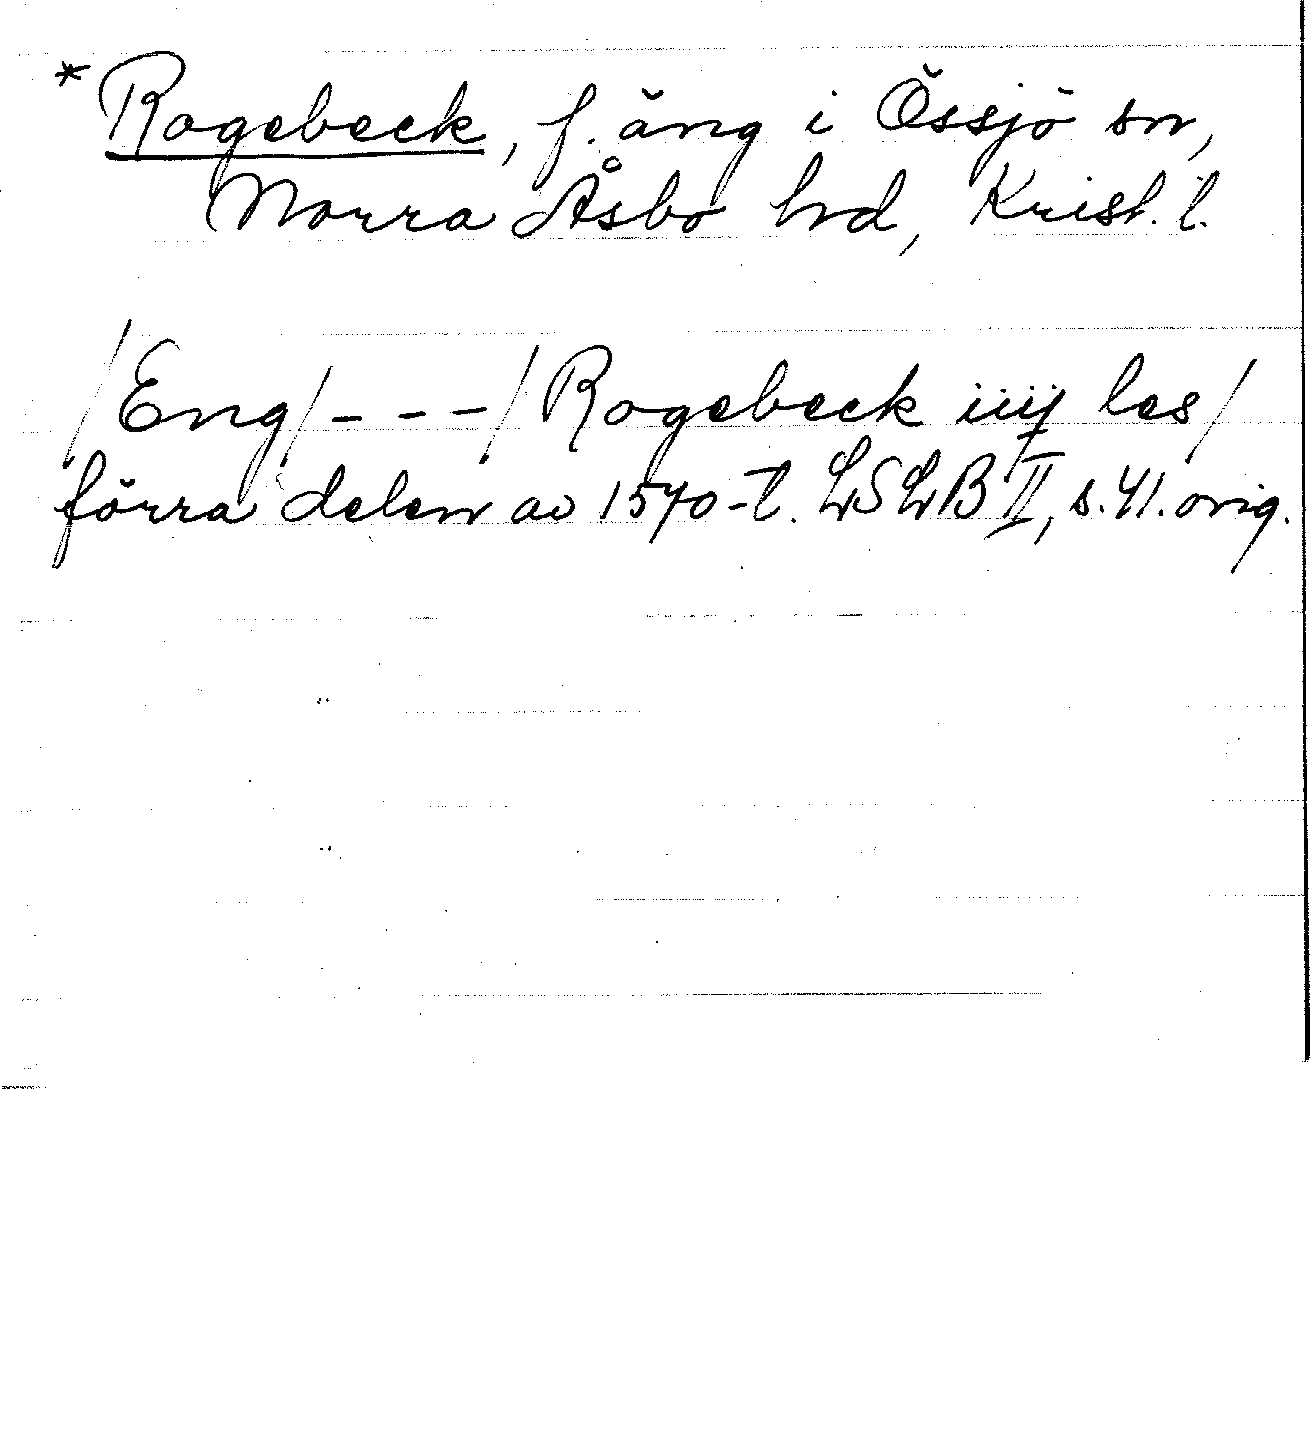 *Rogebeck, f. äng i Össjö sn,
Norra Åsbo hd, Krist. l.
/Eng/ - - - / Rogebeck iiij les /
förra delen av 1570-t. LSLB II, s. 41. orig.